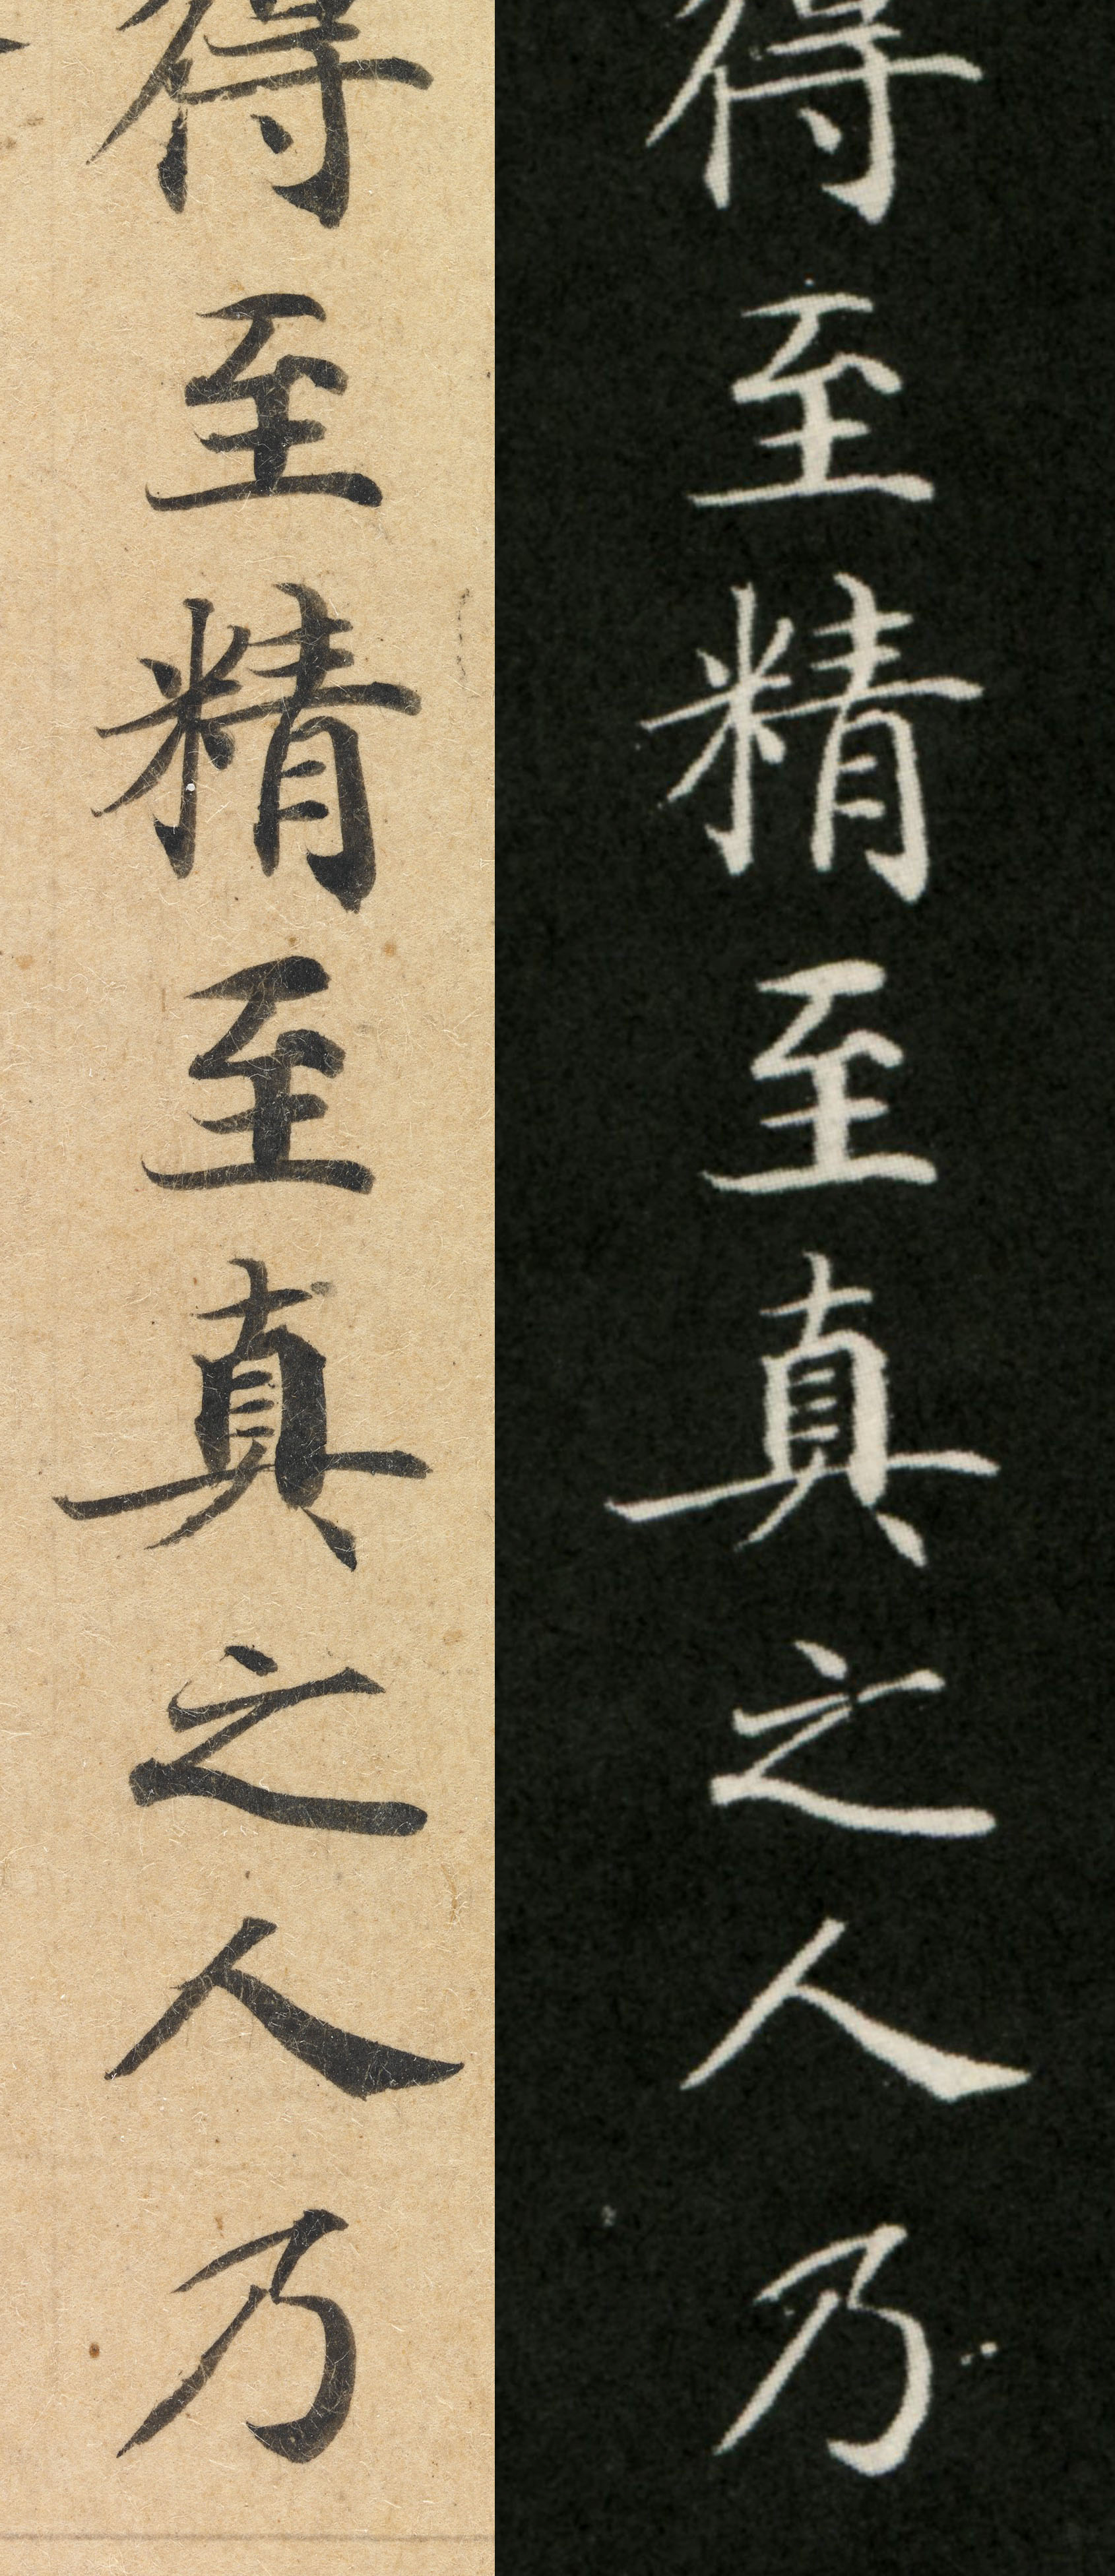 得至精至真之人乃
得至精至真之人乃